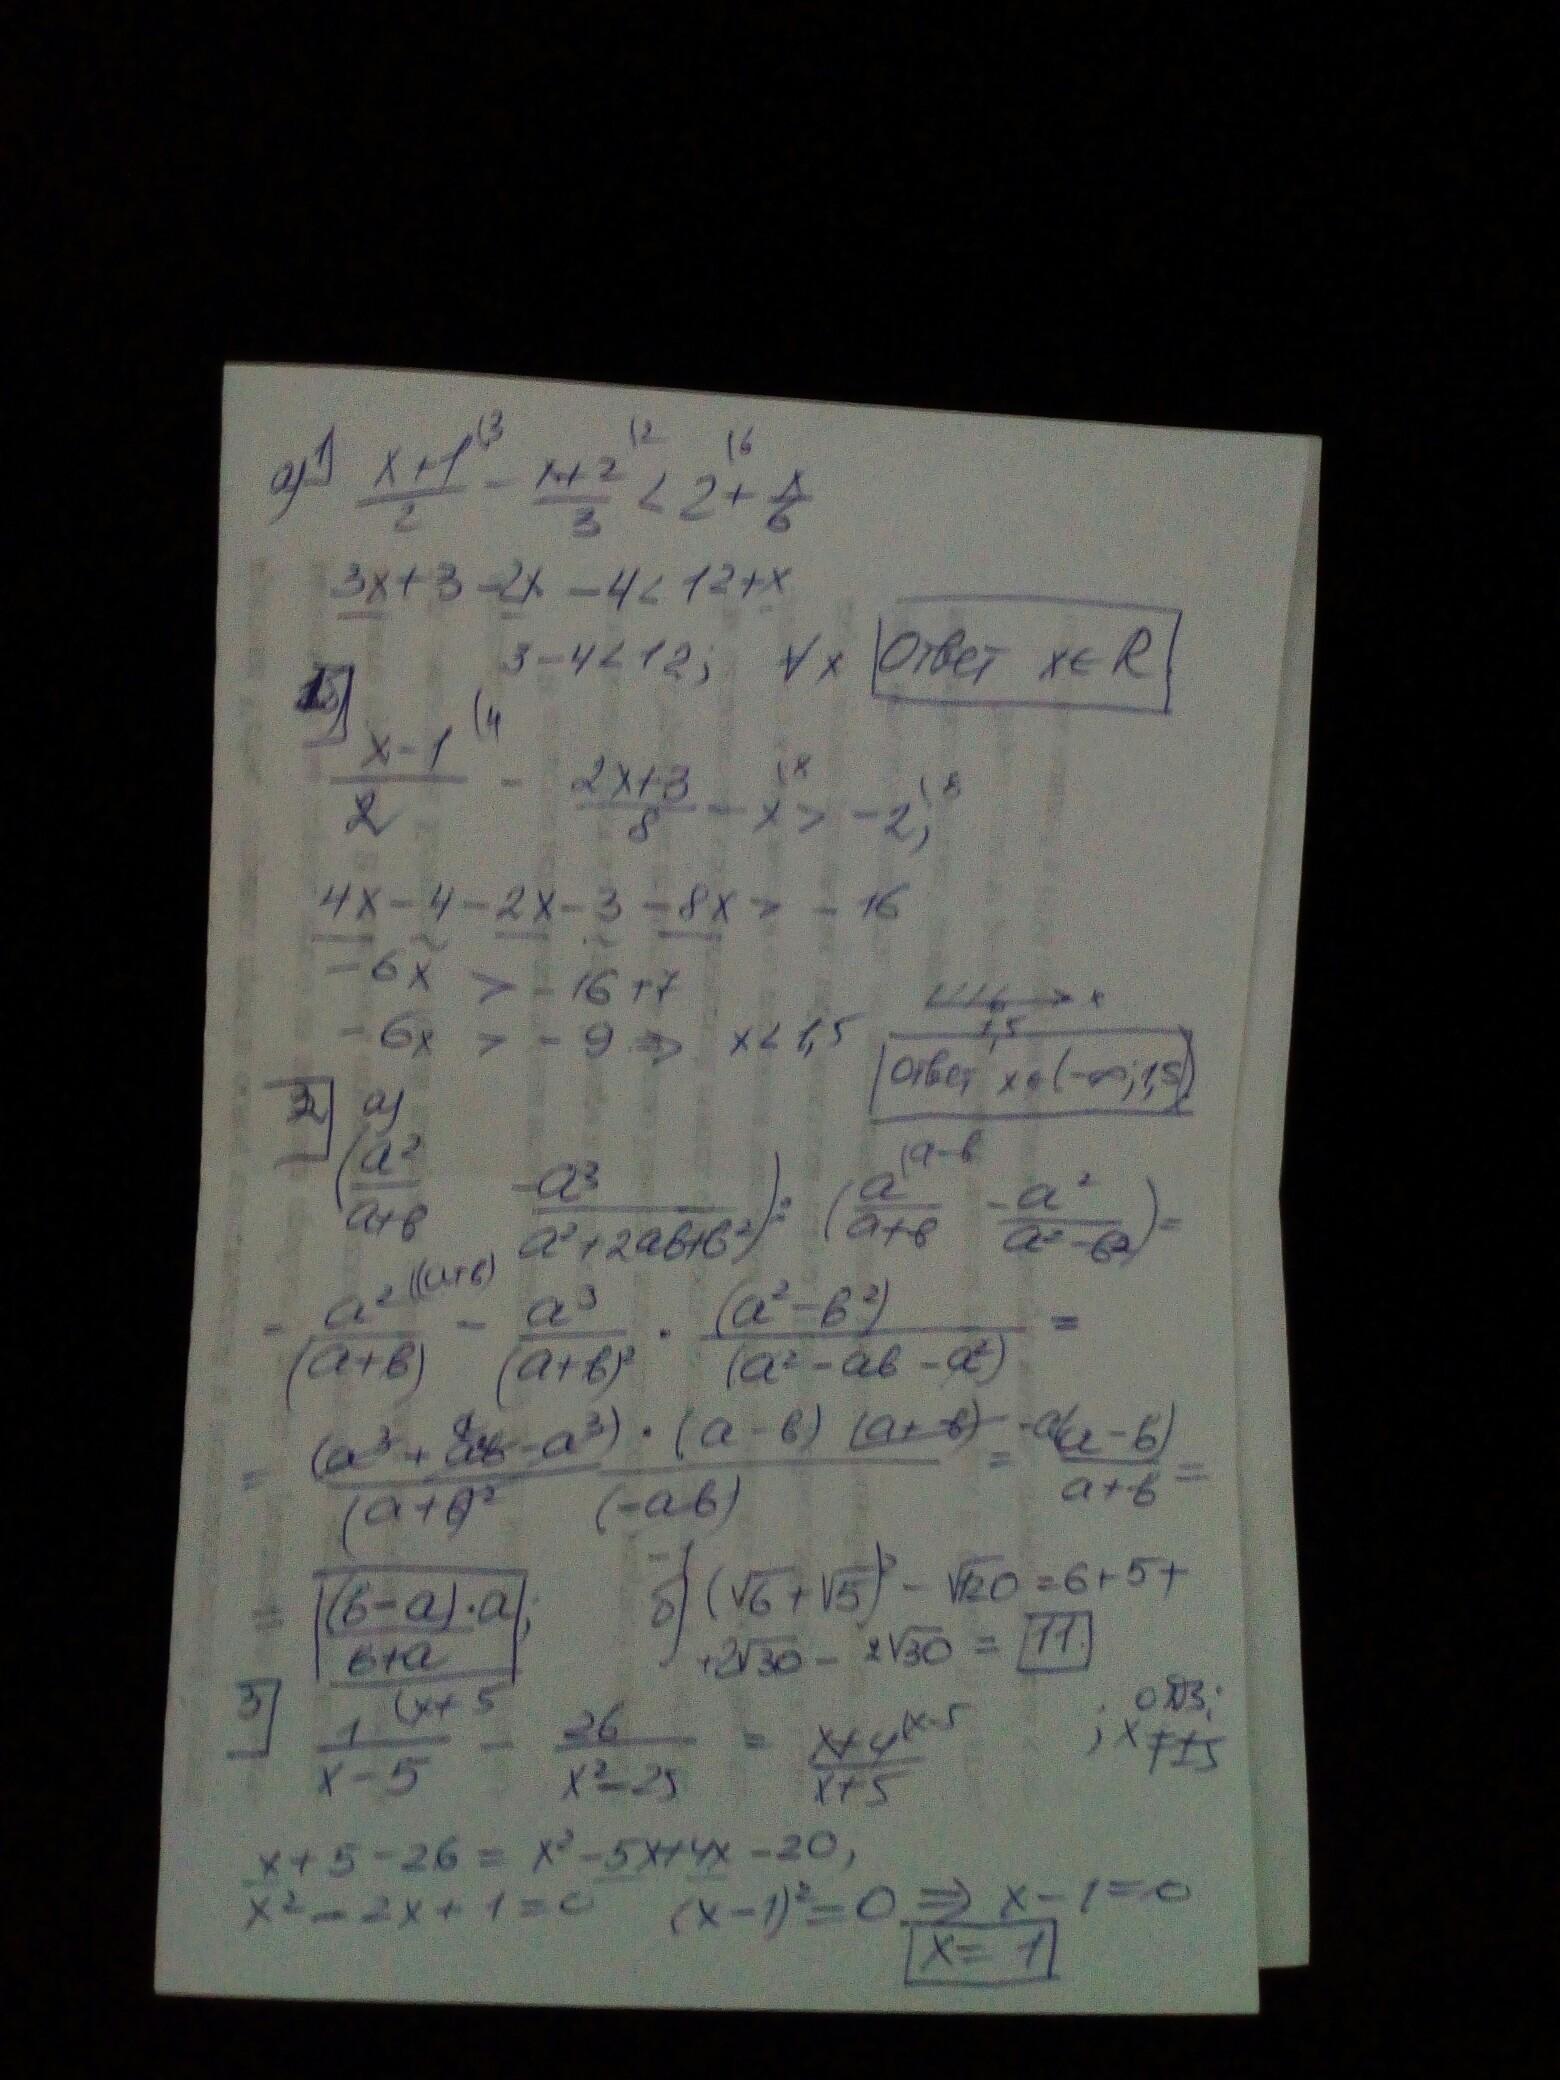 а) 1] (x+1)/2 (3 - (x+2)/3 (2 < 2 (6 + x/6
3x+3-2x-4<12+x
3-4<12; ∀x Ответ x∈R
(x-1)/2 (4 - (2x+3)/8 - x (8 > -2; (8
4x-4-2x-3-8x > -16
-6x > -16+7
-6x > -9 ⇒ x<1,5
1,5 x
Ответ x∈(-∞;1,5)
2] а)
(a²/(a+в) - a³/(a²+2aв+в²)) : (a/(a+в) (a-в - a²/(a²-в²)) =
= a²/(a+в) ((a+в) - a³/(a+в)² · (a²-в²)/(a²-aв-a²) =
= (a³+a²в-a³)·(a-в)(a+в)/((a+в)² (-aв)) = -a(a-в)/(a+в) =
= (в-a)·a/(в+a);
б) (√6+√5)² - √120 = 6+5+
+2√30 - 2√30 = 11.
3] 1/(x-5) (x+5 - 26/(x²-25) = (x+4)/(x+5) (x-5 ; ОДЗ: x≠±5
x+5-26 = x²-5x+4x-20;
x²-2x+1=0 (x-1)²=0 ⇒ x-1=0
x=1